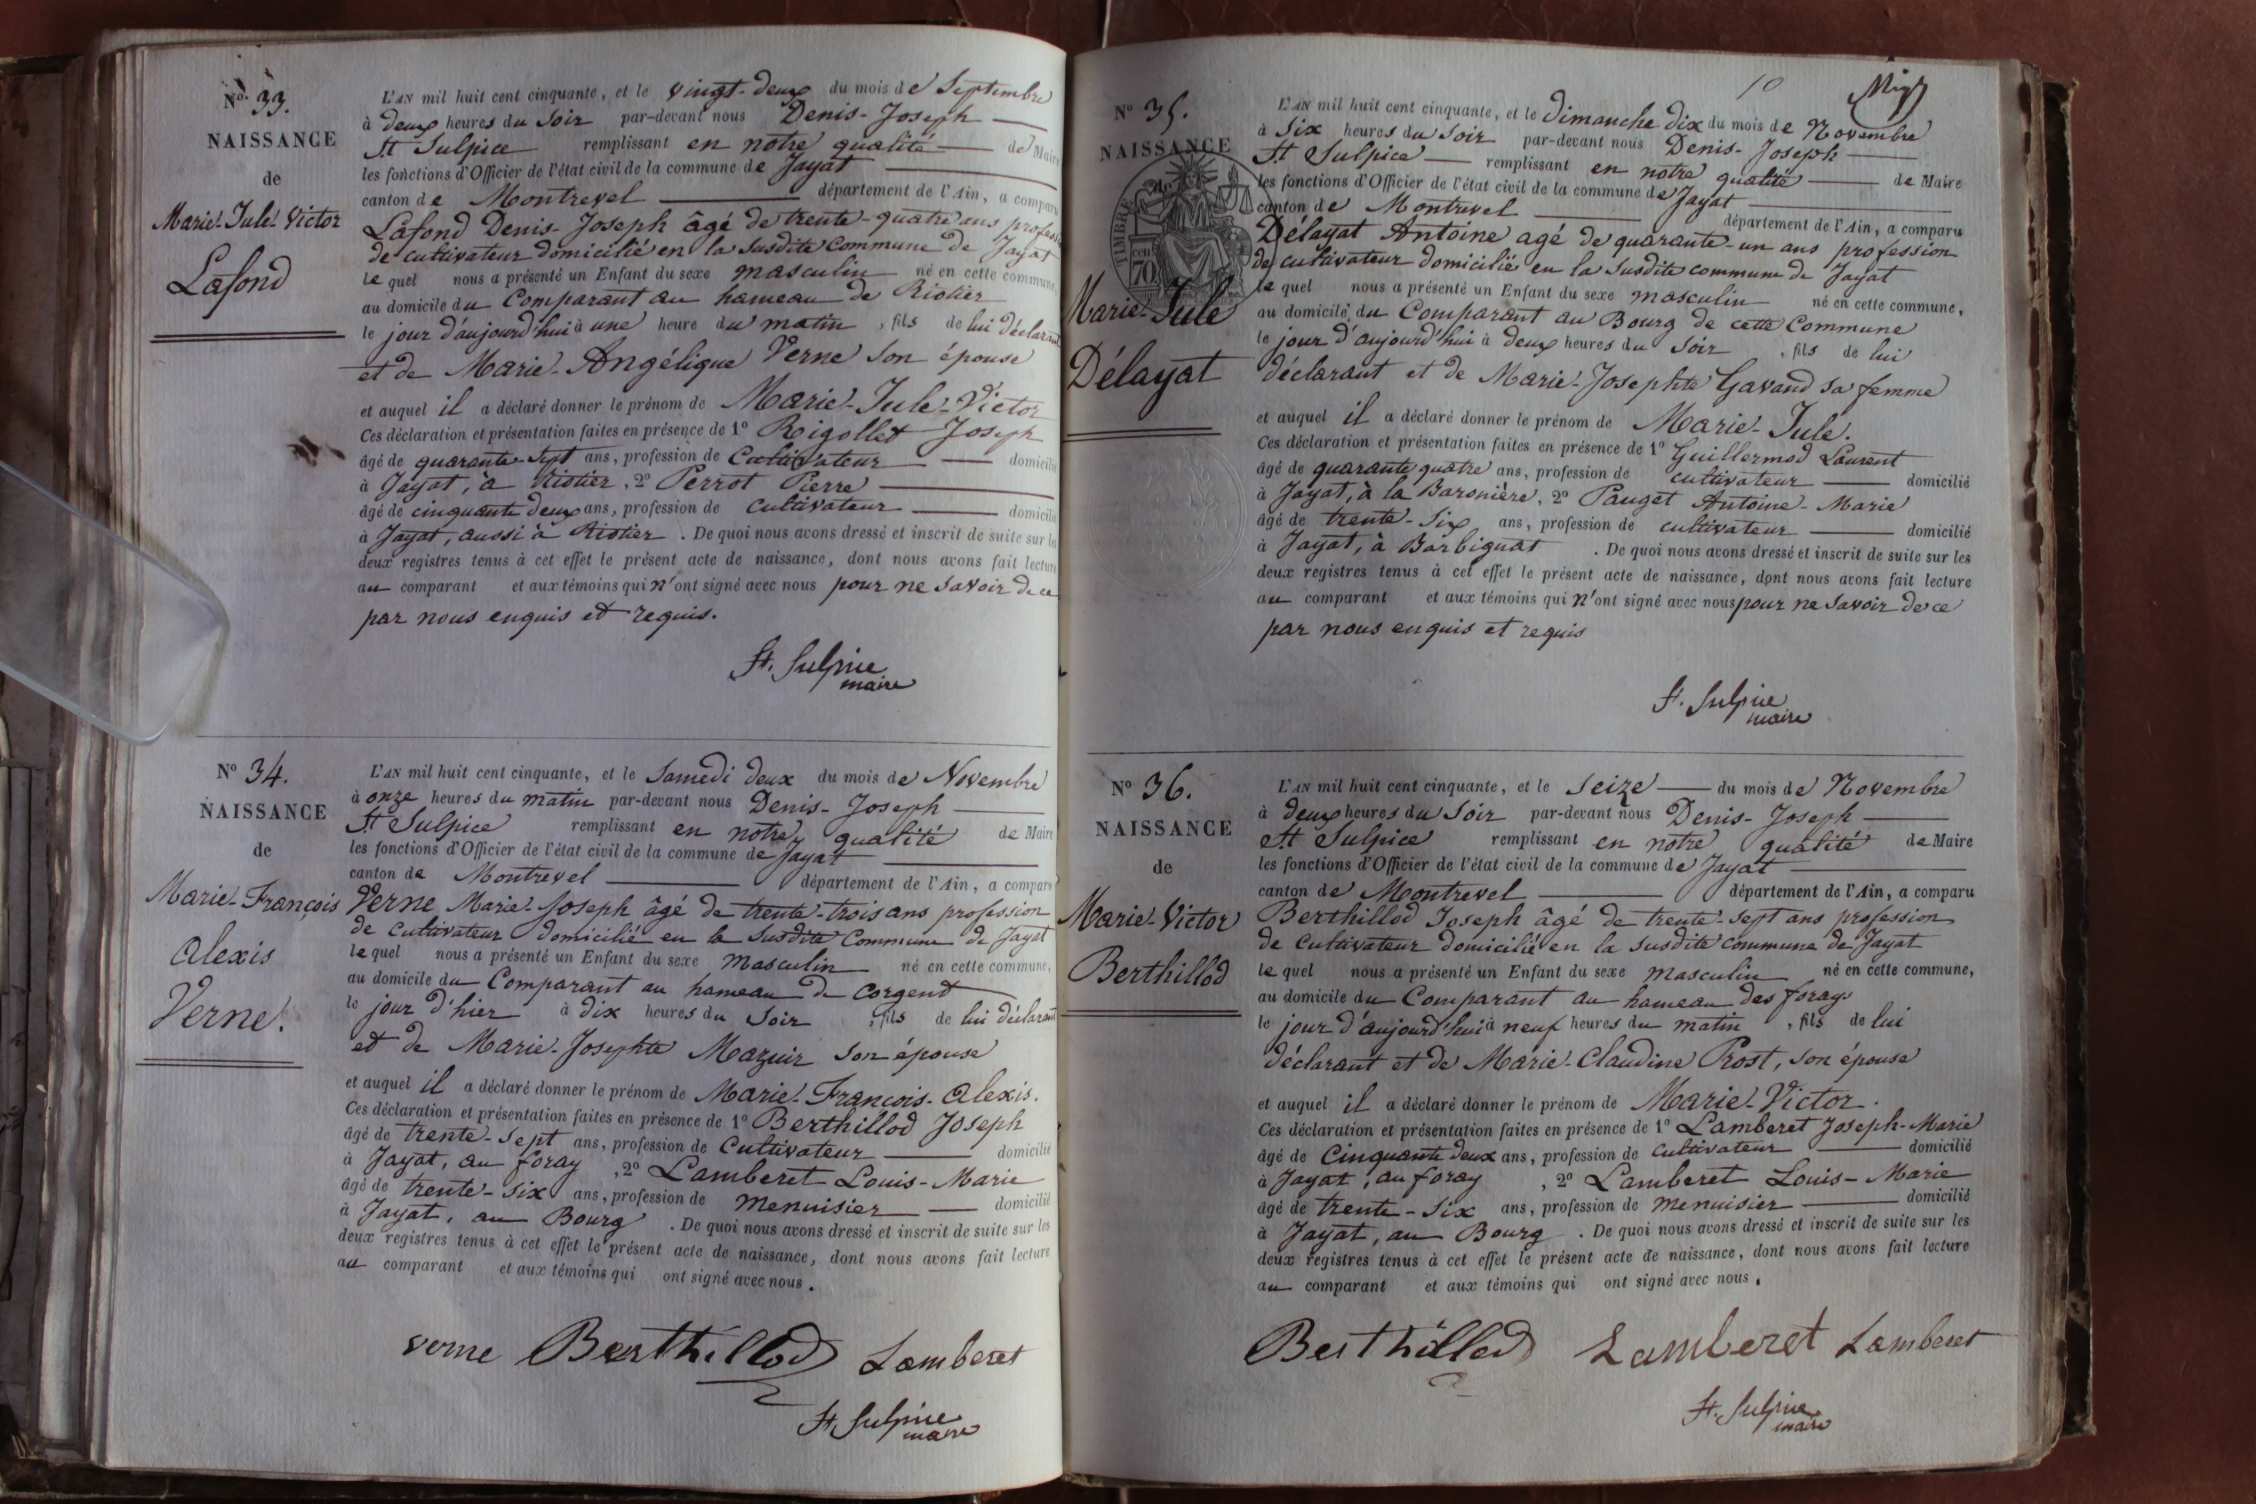 No 33.
NAISSANCE
de
Marie-Jule-Victor
Lafond
L'AN mil huit cent cinquante, et le vingt-deux du mois de Septembre
à deux heures du Soir par-devant nous Denis-Joseph
St Sulpice remplissant en notre qualité de Maire
les fonctions d'Officier de l'état civil de la commune de Jayat
canton de Montrevel département de l'Ain, a comparu
Lafond Denis-Joseph âgé de trente-quatre ans profession
de cultivateur domicilié en la susdite Commune de Jayat
lequel nous a présenté un Enfant du sexe masculin né en cette commune,
au domicile du Comparant au hameau de Riotier
le jour d'aujourd'hui à une heure du matin, fils de lui déclarant
et de Marie-Angélique Verne son épouse
et auquel il a déclaré donner le prénom de Marie-Jule-Victor
Ces déclaration et présentation faites en présence de 1o Rigollet Joseph
âgé de quarante-sept ans, profession de Cultivateur domicilié
à Jayat, à Riotier, 2o Perrot Pierre
âgé de cinquante deux ans, profession de cultivateur domicilié
à Jayat, aussi à Riotier. De quoi nous avons dressé et inscrit de suite sur les
deux registres tenus à cet effet le présent acte de naissance, dont nous avons fait lecture
au comparant et aux témoins qui n'ont signé avec nous pour ne savoir de ce
par nous enquis et requis.
St. Sulpice
maire
No 34.
NAISSANCE
de
Marie-François
Alexis
Verne.
L'AN mil huit cent cinquante, et le Samedi deux du mois de Novembre
à onze heures du matin par-devant nous Denis-Joseph
St Sulpice remplissant en notre qualité de Maire
les fonctions d'Officier de l'état civil de la commune de Jayat
canton de Montrevel département de l'Ain, a comparu
Verne Marie-Joseph âgé de trente-trois ans profession
de cultivateur domicilié en la susdite Commune de Jayat
lequel nous a présenté un Enfant du sexe masculin né en cette commune,
au domicile du Comparant au hameau de Corgent
le jour d'hier à dix heures du Soir, fils de lui déclarant
et de Marie-Josephte Mazuir son épouse
et auquel il a déclaré donner le prénom de Marie-François-Alexis.
Ces déclaration et présentation faites en présence de 1o Berthillod Joseph
âgé de trente-sept ans, profession de Cultivateur domicilié
à Jayat, au foray, 2o Lamberet Louis-Marie
âgé de trente-six ans, profession de menuisier domicilié
à Jayat, au Bourg. De quoi nous avons dressé et inscrit de suite sur les
deux registres tenus à cet effet le présent acte de naissance, dont nous avons fait lecture
au comparant et aux témoins qui ont signé avec nous.
verne Berthillod Lamberet
St Sulpice
maire
10
No 35.
NAISSANCE
de
TIMBRE
70
Marie-Jule
Délayat
L'AN mil huit cent cinquante, et le dimanche dix du mois de Novembre
à Six heures du Soir par-devant nous Denis-Joseph
St Sulpice remplissant en notre qualité de Maire
les fonctions d'Officier de l'état civil de la commune de Jayat
canton de Montrevel département de l'Ain, a comparu
Délayat Antoine agé de quarante-un ans profession
de cultivateur domicilié en la susdite commune de Jayat
lequel nous a présenté un Enfant du sexe masculin né en cette commune,
au domicile du Comparant au Bourg de cette Commune
le jour d'aujourd'hui à deux heures du Soir, fils de lui
déclarant et de Marie-Josephte Gavand sa femme
et auquel il a déclaré donner le prénom de Marie-Jule.
Ces déclaration et présentation faites en présence de 1o Guillermod Laurent
âgé de quarante quatre ans, profession de cultivateur domicilié
à Jayat, à la Baronière, 2o Pauget Antoine-Marie
âgé de trente-Six ans, profession de cultivateur domicilié
à Jayat, à Barbignat. De quoi nous avons dressé et inscrit de suite sur les
deux registres tenus à cet effet le présent acte de naissance, dont nous avons fait lecture
au comparant et aux témoins qui n'ont signé avec nous pour ne savoir de ce
par nous enquis et requis
St. Sulpice
maire
No 36.
NAISSANCE
de
Marie-Victor
Berthillod
L'AN mil huit cent cinquante, et le seize du mois de Novembre
à deux heures du Soir par-devant nous Denis-Joseph
St Sulpice remplissant en notre qualité de Maire
les fonctions d'Officier de l'état civil de la commune de Jayat
canton de Montrevel département de l'Ain, a comparu
Berthillod Joseph âgé de trente-sept ans profession
de Cultivateur domicilié en la susdite commune de Jayat
lequel nous a présenté un Enfant du sexe masculin né en cette commune,
au domicile du Comparant au hameau des forays
le jour d'aujourd'hui à neuf heures du matin, fils de lui
déclarant et de Marie-Claudine Prost, son épouse
et auquel il a déclaré donner le prénom de Marie-Victor.
Ces déclaration et présentation faites en présence de 1o Lamberet Joseph-Marie
âgé de Cinquante deux ans, profession de Cultivateur domicilié
à Jayat, au foray, 2o Lamberet Louis-Marie
âgé de trente-Six ans, profession de menuisier domicilié
à Jayat, au Bourg. De quoi nous avons dressé et inscrit de suite sur les
deux registres tenus à cet effet le présent acte de naissance, dont nous avons fait lecture
au comparant et aux témoins qui ont signé avec nous.
Berthillod Lamberet Lamberet
St. Sulpice
maire